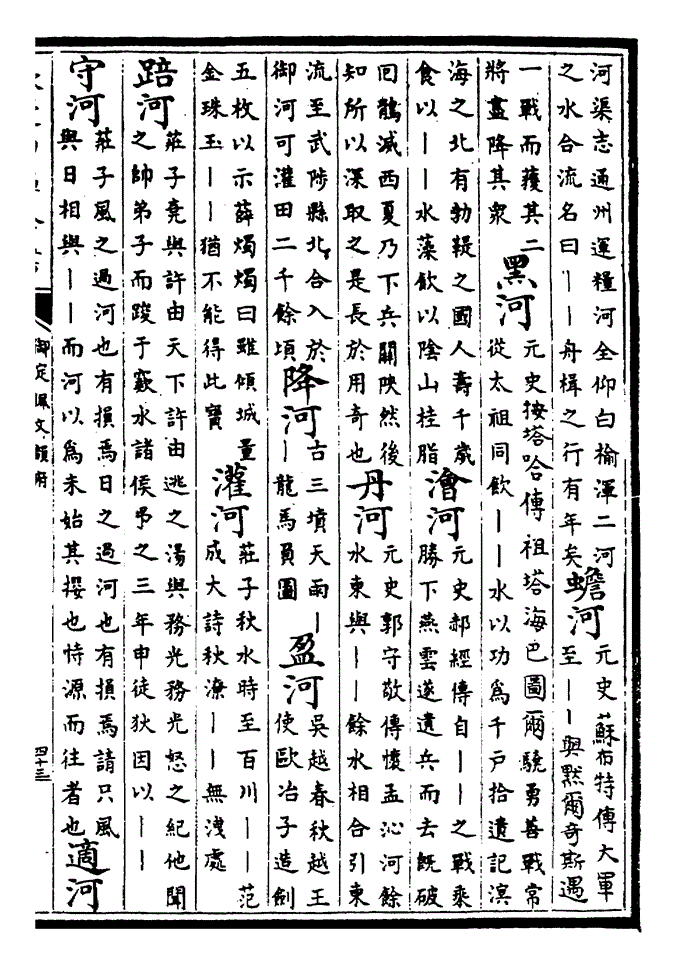 河渠志通州運糧河全仰白榆渾二河
之水合流名曰丨丨舟楫之行有年矣
蟾河
元史蘇布特傳大軍
至丨丨與黙爾奇斯遇
一戰而獲其二
將盡降其衆
黑河
元史按塔哈傳祖塔海巴圖爾驍勇善戰常
從太祖同飲丨丨水以功爲千戸拾遺記溟
海之北有勃鞮之國人壽千歲
食以丨丨水藻飲以陰山桂脂
澮河
元史郝經傳自丨丨之戰乘
勝下燕雲遂遺兵而去旣破
回鶻滅西夏乃下兵關陝然後
知所以深取之是長於用奇也
丹河
元史郭守敬傳懷孟沁河餘
水東與丨丨餘水相合引東
流至武陟縣北合入於
御河可灌田二千餘頃
降河
古三墳天雨丨
丨龍馬負圖
盈河
吳越春秋越王
使歐冶子造劍
五枚以示薛燭燭曰雖傾城量
金珠玉丨丨猶不能得此寶
灌河
莊子秋水時至百川丨丨范
成大詩秋潦丨丨無洩處
踣河
莊子堯與許由天下許由逃之湯與務光務光怒之紀他聞
之帥弟子而踆于窾水諸侯弔之三年申徒狄因以丨丨
守河
莊子風之過河也有損焉日之過河也有損焉請只風
與日相與丨丨而河以爲未始其攖也恃源而往者也
適河
御定佩文韻府
四十三